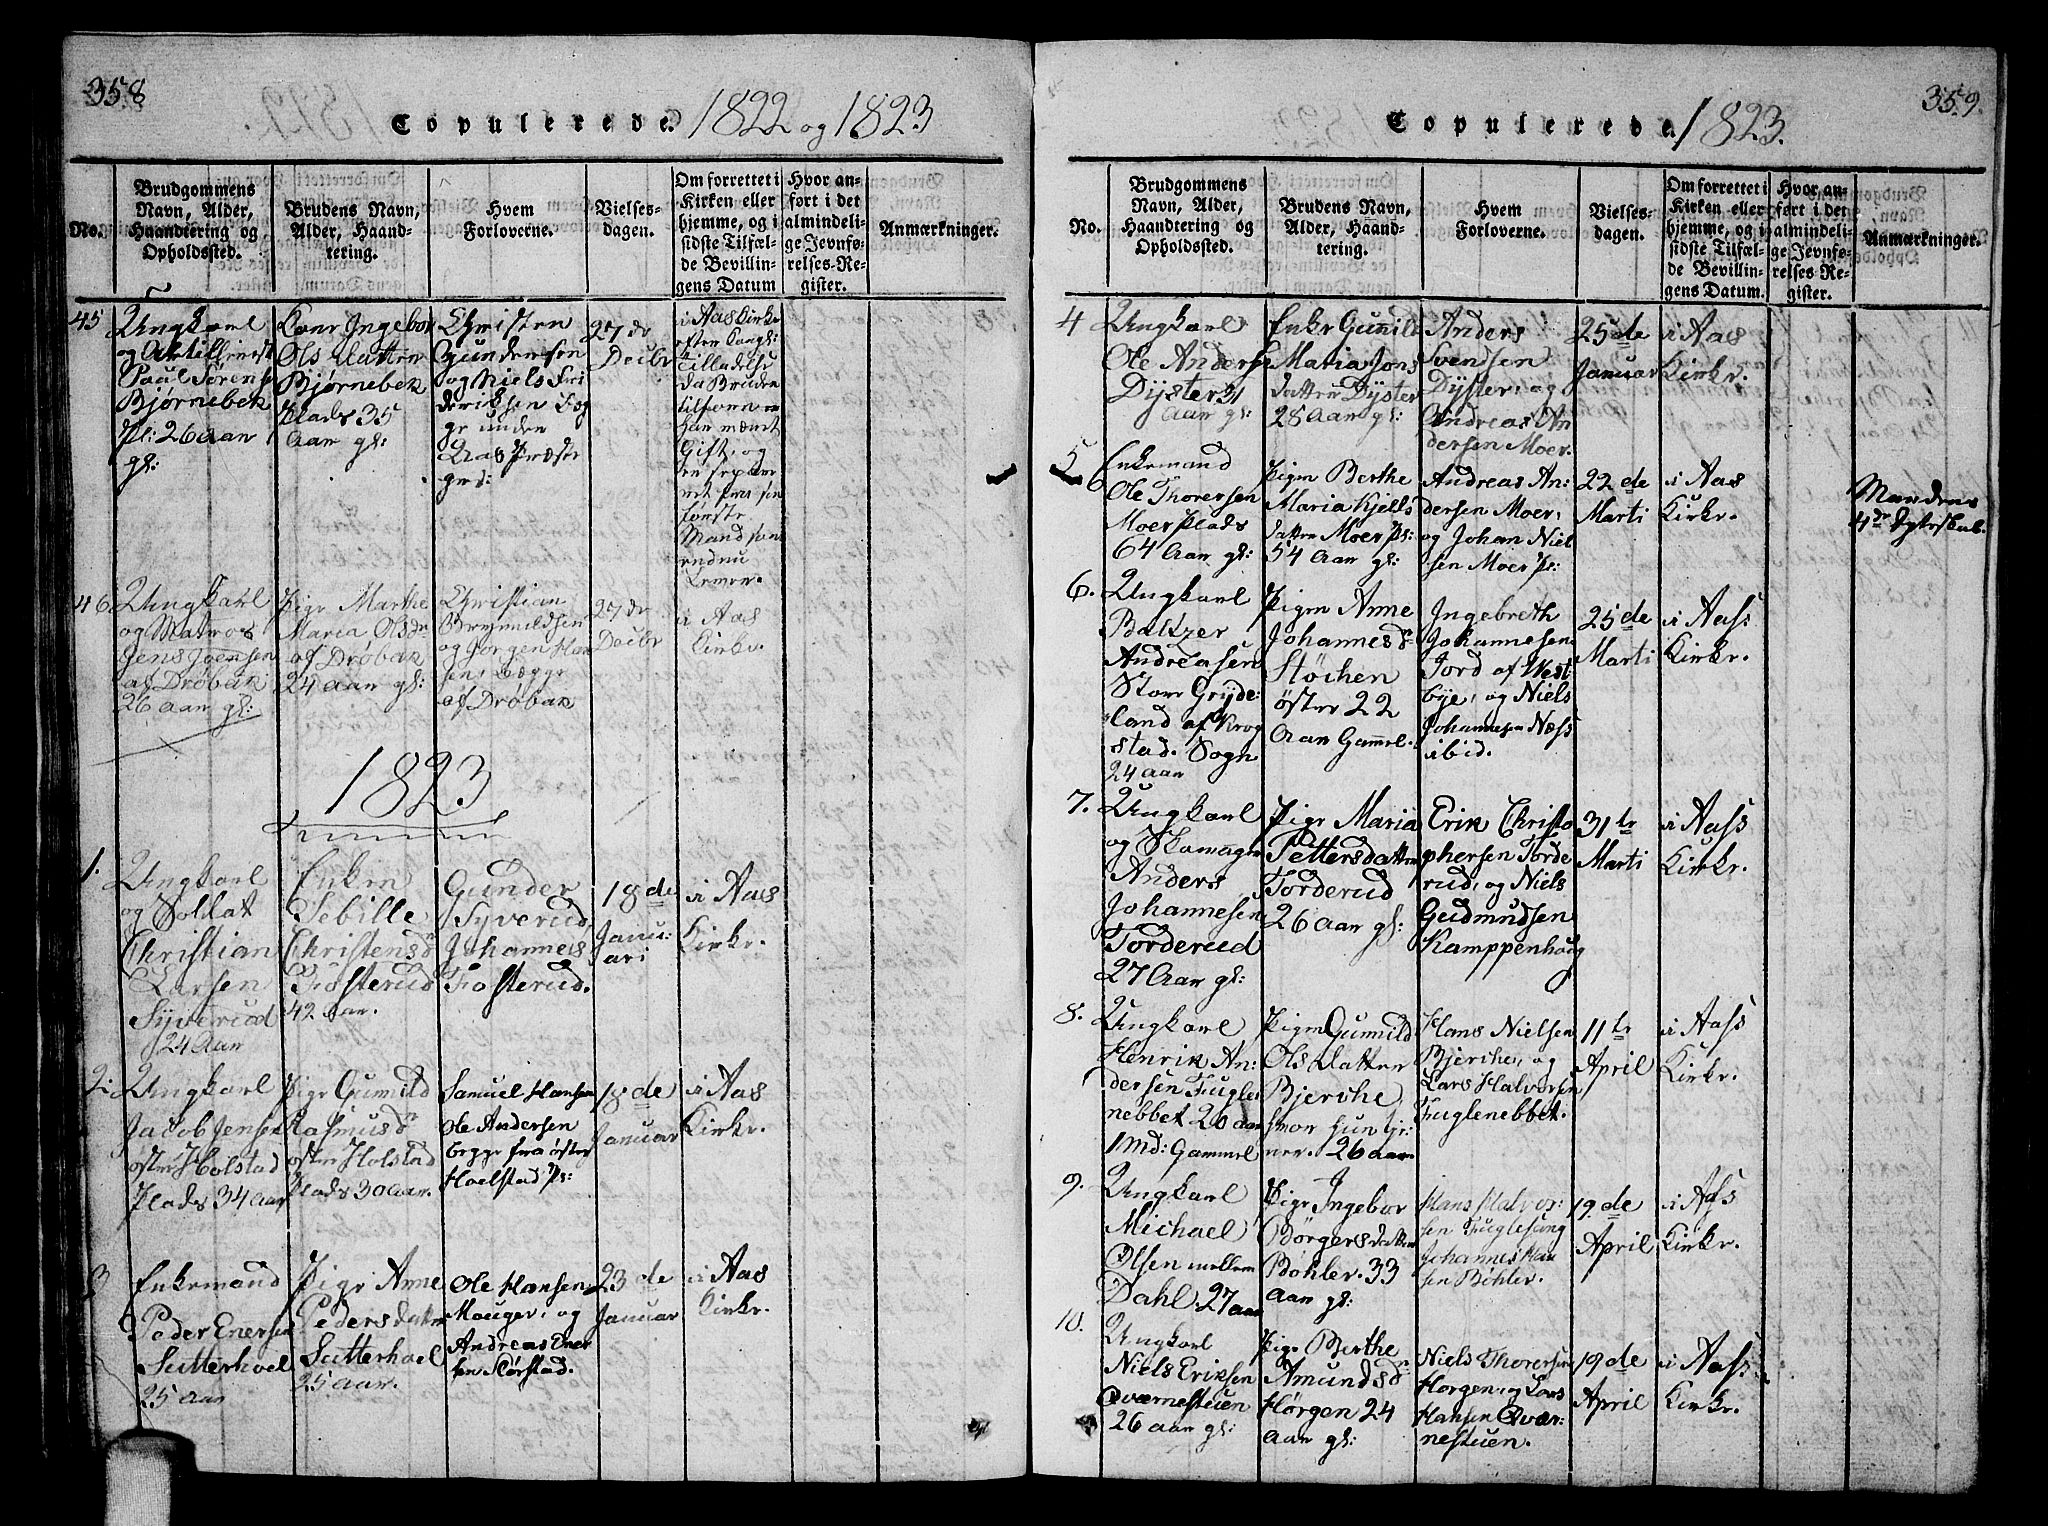 358
Copulerede. 1822 og 1823
No.
Brudgommens
Navn, Alder,
Haandtering og
Opholdssted.
Brudens Navn,
Alder, Haand-
tering.
Hvem
Forloverne.
Vielses-
dagen.
Om forrettet i
Kirken eller
hjemme, og i
sidste Tilfæl-
de Bevillin-
gens Datum
Hvor an-
ført i det
almindeli-
ge Jevnfø-
relses-Re-
gister.
Anmærkninger.
45
Ungkarl
og Artillerist
Paul Sørens
Bjørnebek
Pl: 26 aar
gl:
Kone Ingebor
Ols datter
Bjørnebek
Plads 35
Aar gl:
Christen
Gundersen
og Niels Fri
deriksen
under
Aas Præste
grd:
27 de
Decbr
i Aas Kirke
efter
Tilladelse
da Bruden
tilforn
har været
Gift, og
en
første
Mand som
endnu
Lever.
46.
Ungkarl
og Matros
Jens Joensen
af Drøbak
26 Aar gl:
Pige Marthe
Maria Olsdr
af Drøbak
24 aar gl:
Christian
Brynnildsen
og Jørgen Han
sen, begge
af Drøbak
27 de
Decbr
i Aas
Kirke.
1823
1.
Ungkarl
og Soldat
Christian
Larsen
Syverud
24 Aar
Enken
Sebille
Christensdr
Fosterud
42 Aar.
Gunder
Syverud,
Johannes
Fosterud.
18 de
Janu:
ari
i Aas
Kirke.
2.
Ungkarl
Jacob Jensen
øster Holstad
Plads 34 Aar
Pige Gunild
Rasmusdr
øster Holstad
Plads 30 Aar.
Samuel Hansen
Ole Andersen
begge fra øster
Hoelstad Pl:
18 de
Januar
i Aas
Kirke.
3
Enkemand
Peder Enersen
Sutterhoel
25 aar
Pige Anne
Pedersdatter
Sutterhoel
25 aar.
Ole Hansen
Hauger, og
Andreas Ener
sen Norstad.
23 de
Januar
i Aas
Kirke.
359.
Copulerede. 1823.
No.
Brudgommens
Navn, Alder,
Haandtering og
Opholdssted.
Brudens Navn,
Alder, Haand-
tering.
Hvem
Forloverne.
Vielses-
dagen.
Om forrettet i
Kirken eller
hjemme, og i
sidste Tilfæl-
de Bevillin-
gens Datum.
Hvor an-
ført i det
almindeli-
ge Jevnfø-
relses-Re-
gister.
Anmærkninger.
4
Ungkarl
Ole Anders
Dyster 31
Aar gl:
Enke Gunild
Maria Jons
datter Dyster
28 Aar gl:
Anders
Svendsen
Dyster, og
Andreas An
dersen Moer.
25 de
Januar
i Aas
Kirke.
5
Enkemand
Ole Thoresen
Moer Plads
64 Aar gl:
Pigen Berthe
Maria Kjells
datter Moer Pl:
54 Aar gl:
Andreas An:
dersen Moer,
og Johan Niel
sen Moer Pl:
22 de
Marti
i Aas
Kirke.
Mandens
4de Egteskab.
6.
Ungkarl
Baltzer
Andreasen
Store Gryde:
land af Krog
stad. Sogn
24 aar
Pigen Anne
Johannesdr
Støchen
öster 22
Aar Gammel.
Ingebreth
Johannesen
Jord af West
bye, og Niels
Johannesen Næss
ibid.
25 de
Marti
i Aas:
Kirke.
7.
Ungkarl
og Skomager
Anders
Johannesen
Torderud
27 Aar gl:
Pige Maria
Pettersdatter
Torderud
26 aar gl:
Erik Christo
phersen Torde
rud, og Niels
Gudmundsen
Kamppenhoug
31 te
Marti
i Aass
Kirke.
8.
Ungkarl
Henrik An:
dersen Fugle
nebbet 20 aar
1 Md: Gammel
Pigen Gunnild
Ols datter
Bjerche
hun tje:
ner. 26 aar.
Hans Nielsen
Bjerche, og
Lars Halvorsen
Fuglenebbet.
11 te
April
i Aass
Kirke.
9.
Ungkarl
Michael
Olsen mellem
Dahl 27 aar
Pige Ingebor
Børgersdatter
Bøhler. 33
aar gl:
Hans Halvor:
sen Fuglesang
Johannes Han
sen Böhler.
19. de
April
i Aass
Kirke.
10.
Ungkarl
Niels Eriksen
Qværnestuen
26 aar gl:
Pige Berthe
Amundsdr
Hørgen 24
aar gl:
Niels Thoresen
Horgen, og Lars
Hansen Qvær:
nestuen.
19 de
April
i Aass
Kirke.